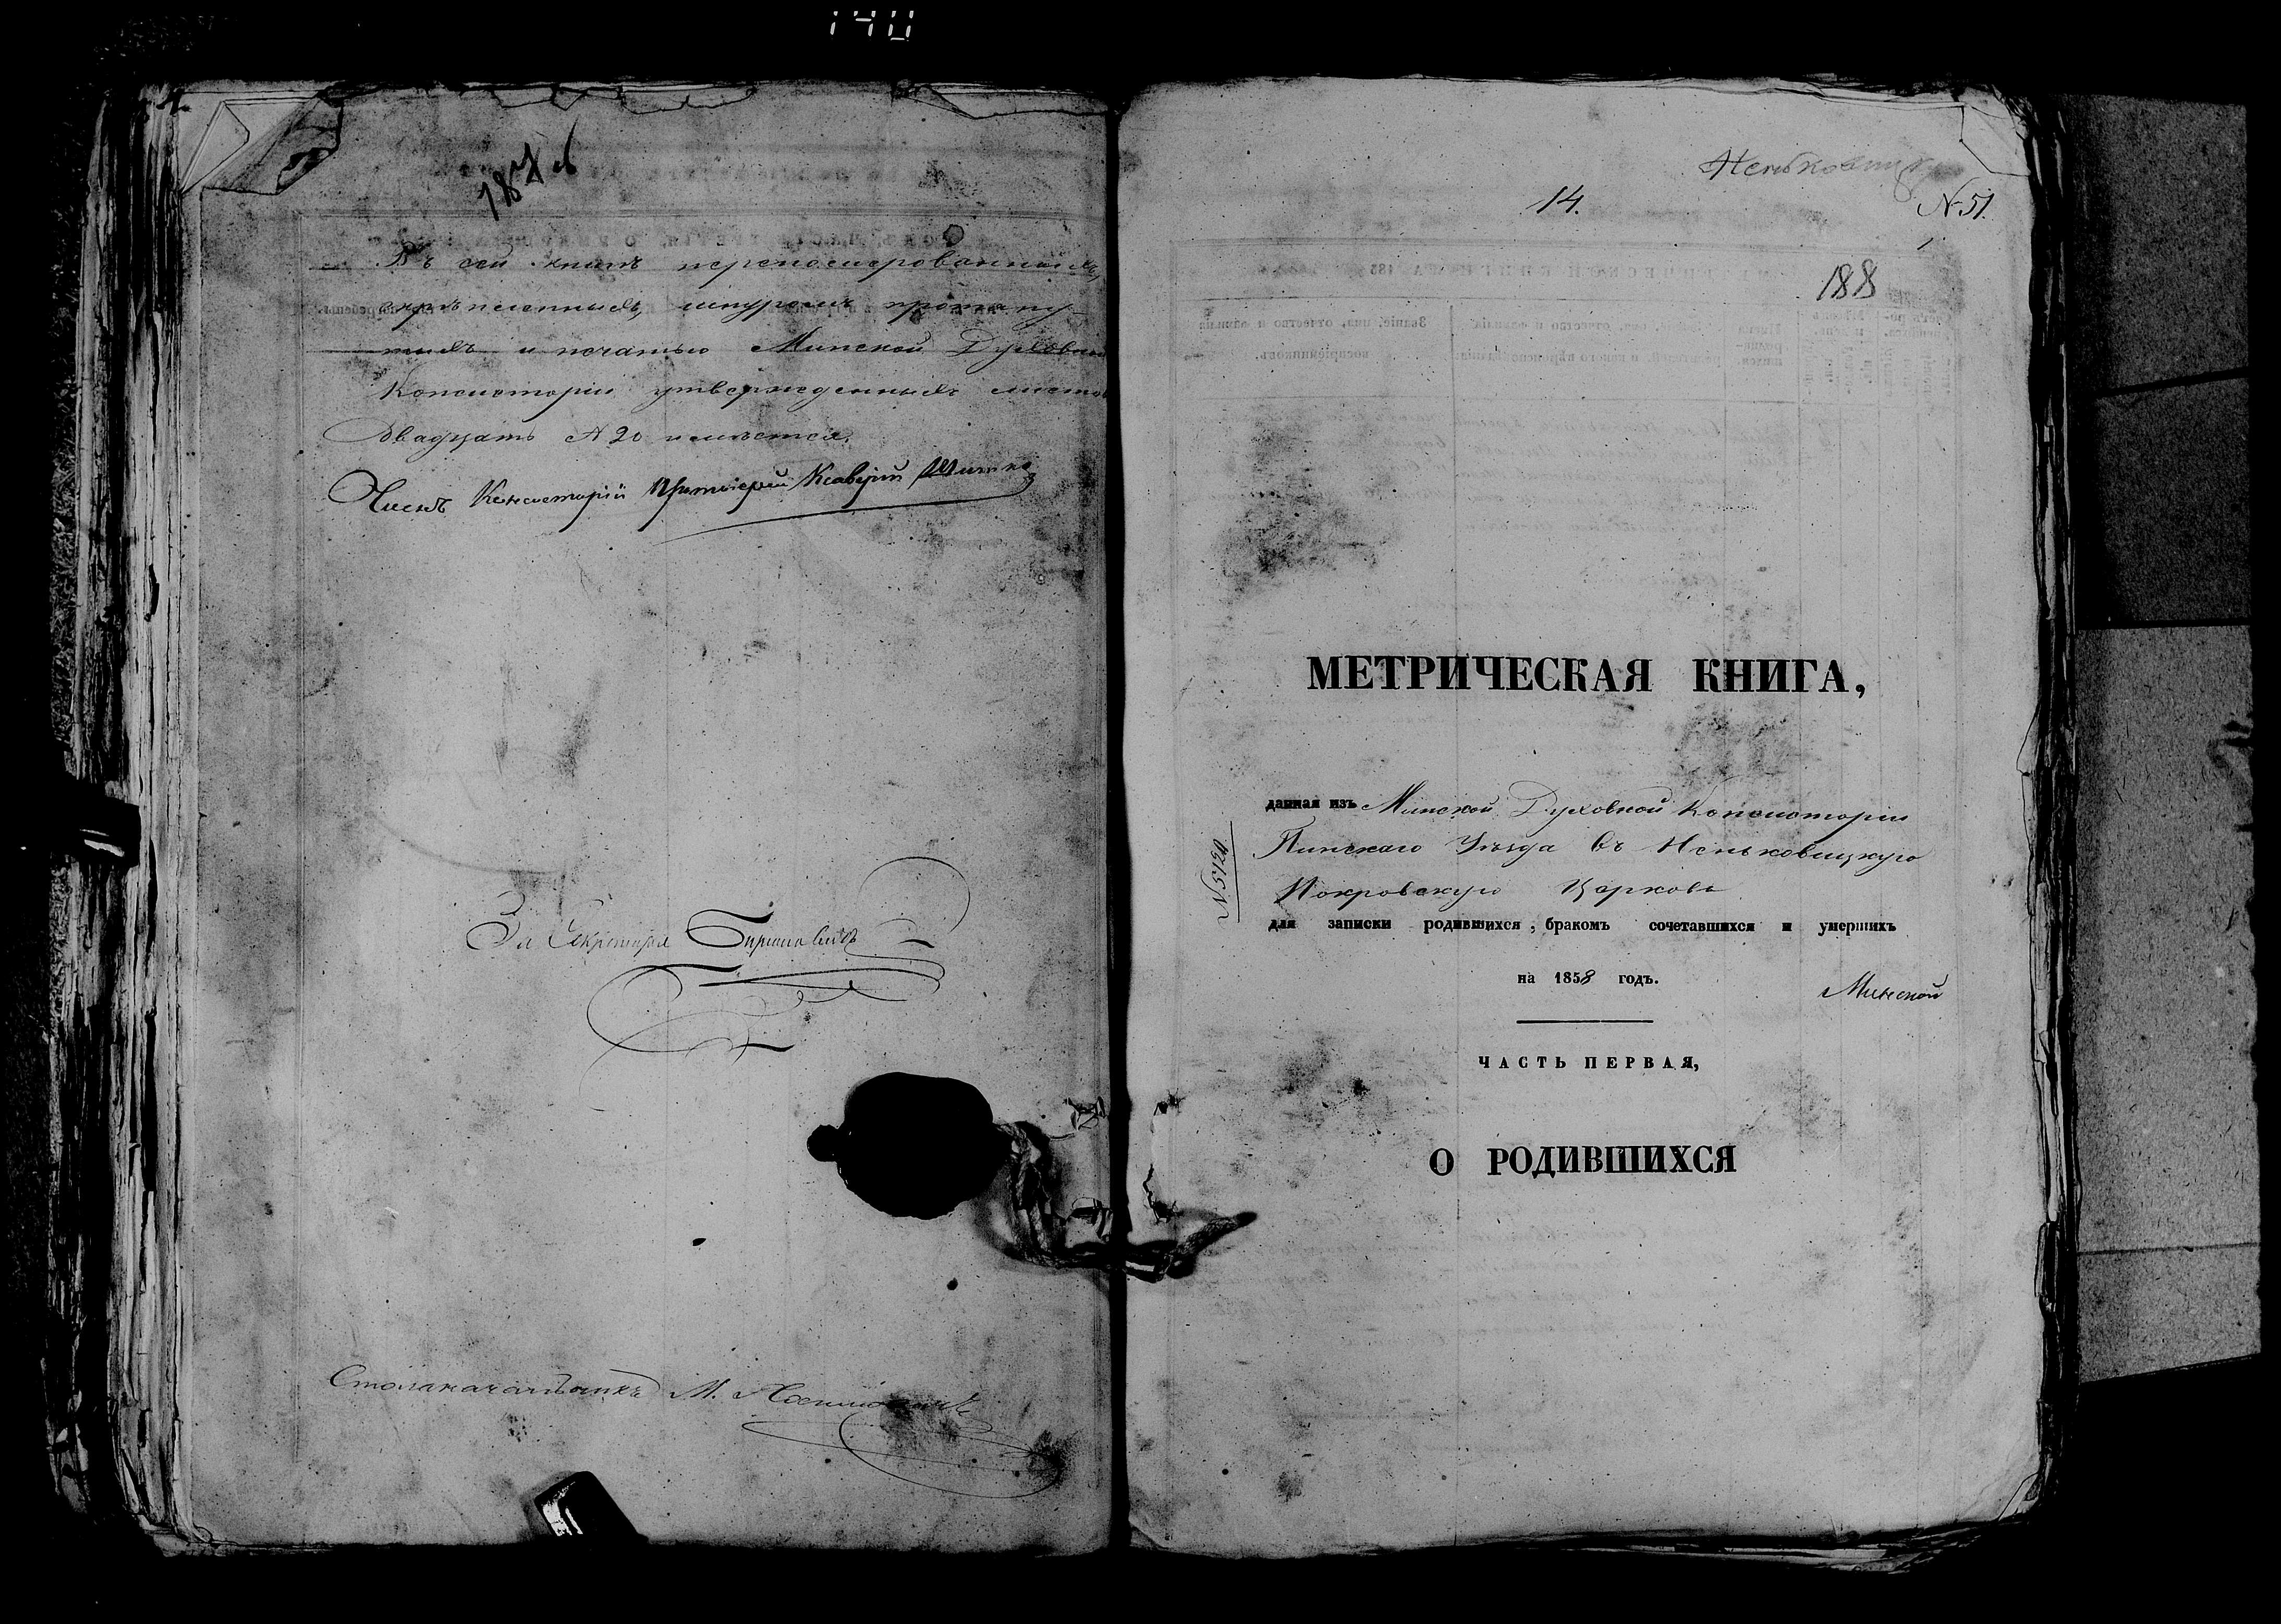 140
187 об
Въ сей книгѣ перенумерованныхъ,
скрѣпленныхъ, шнуромъ протяну-
тыхъ и печатью Минской Духовной
Консисторіи утвержденныхъ листовъ
двадцать № 20 имѣется.
Членъ Консисторіи Протоіерей Ксаверій
За Секретаря
Столоначальникъ М.
Неньковицкую
14.
N 51.
1
188
МЕТРИЧЕСКАЯ КНИГА,
данная изъ Минской Духовной Консисторіи
Пинскаго Уѣзда въ Неньковицкую
Покровскую Церковь
N 5124
для записки родившихся, бракомъ сочетавшихся и умершихъ
на 1858 годъ.
Минской
ЧАСТЬ ПЕРВАЯ,
О РОДИВШИХСЯ